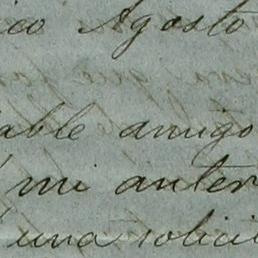 ico Agosto
able amigo
mi anter
una solicit